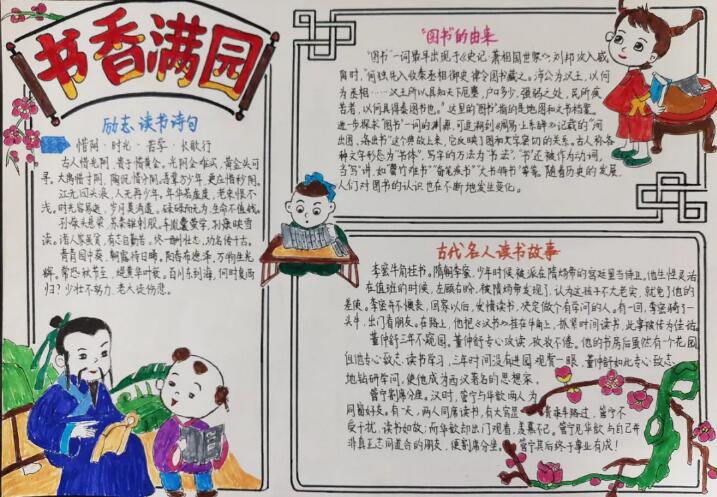 书香满园
励志读书诗句
惜阴·时光·苦学·长歌行
古人惜光阴,贵于惜黄金。光阴金难买,黄金失可
寻。大禹惜寸阴,陶侃惜分阴。吾辈方少年,更应惜秒阴。
江流回头浪,人无再少年。年华若虚度,老来恨不
浅。时光容易逝,岁月莫消遣。碌碌而无为,生命不值钱。
孙敬头悬梁,苏秦锥刺股。车胤囊萤学,孙康映雪
读。清人家虽贫,有志自勤苦。终一朝壮志,功名传千古。
青青园中葵,朝露待日晞。阳春布德泽,万物生光
辉。常恐秋节至,焜黄华叶衰。百川东到海,何时复西
归?少壮不努力,老大徒伤悲。
“图书”的由来
“图书”一词最早出现于《史记·萧相国世家》,刘邦攻入咸
阳时,“何独先入收秦丞相御史律令图书藏之。沛公为汉王,以何
为丞相……汉王所以具知天下厄塞,户口多少,强弱之处,民所疾
苦者,以何具得秦图书也。”这里的“图书”指的是地图和文书档案。
进一步探求“图书”一词的渊源,可追溯到《周易·上系辞》记载的“河
出图、洛出书”这个典故上来,它反映了图和文字密切的关系。古人称各
种文字形态为“书体”,写字的方法为“书法”,“书”还被作为动词,
当“写”讲,如“罄竹难书”“奋笔疾书”“大书特书”等等。随着历史的发展,
人们对图书的认识也在不断地发生变化。
古代名人读书故事
李密牛角挂书。隋朝李密,少年时候被派在隋炀帝的宫廷里当侍卫。他生性灵活
在值班的时候,左顾右盼,被隋炀帝发现了,认为这孩子不大老实,就免了他的
差使。李密并不懊丧,回家以后,发愤读书,决定做个有学问的人。有一回,李密骑了一
头牛,出门看朋友。在路上,他把《汉书》挂在牛角上,抓紧时间读书,此事被传为佳话。
董仲舒三年不窥园。董仲舒专心攻读,孜孜不倦。他的书房后虽然有个花园
但他专心致志,读书学习,三年时间没有进园观赏一眼,董仲舒如此专心致志,
地钻研学问,使他成为西汉著名的思想家。
管宁割席分坐。汉时,管宁与华歆两人为
同窗好友。有一天,两人同席读书,有大官显 乘车路过,管宁不
受干扰,读书如故;而华歆却出门观看,羡慕不已。管宁见华歆与自己并
非真正志同道合的朋友,便割席分坐。管宁其后终于事业有成!